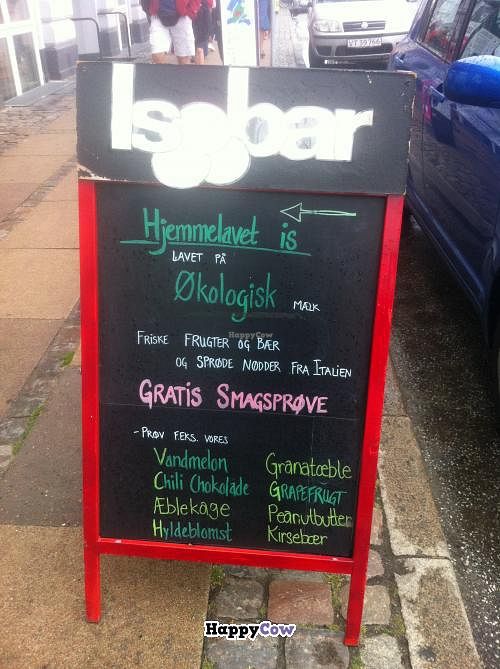 Is@bar
Hjemmelavet is
LAVET PÅ
Økologisk MÆLK
FRISKE FRUGTER OG BÆR
OG SPRØDE NØDDER FRA ITALIEN
GRATIS SMAGSPRØVE
- PRØV F.EKS. VORES
Vandmelon Granatæble
Chili Chokolade GRAPEFRUGT
Æblekage Peanutbutter
Hyldeblomst Kirsebær
HappyCow
HappyCow